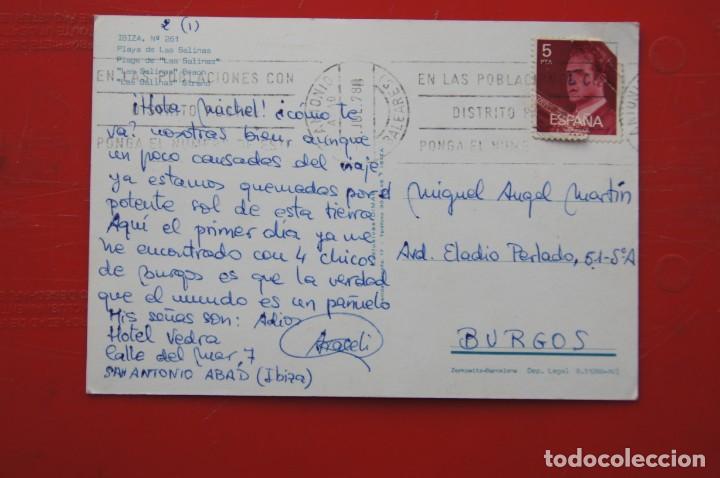 2 (1)
IBIZA, Nº 261
Playa de Las Salinas
Plage de "Las Salinas"
"Las Salinas" Beach
"Las Salinas" Strand
EN LAS POBLACIONES CON
DISTRITO
PONGA EL NUMERO
ANTONIO
JUL. 78
BALEARES
EN LAS POBLACIONES CON
DISTRITO
PONGA EL NUM
5
PTA
ESPAÑA
¡Hola Michel! ¿cómo te
va? nosotras bien, aunque
un poco cansadas del viaje
ya estamos quemadas por el
potente sol de esta tierra
Aquí el primer día ya me
he encontrado con 4 chicos
de Burgos es que la verdad
que el mundo es un pañuelo
Mis señas son: Adios
Hotel Vedra
Araceli
Calle del Mar, 7
SAN ANTONIO ABAD (Ibiza)
Miguel Angel Martín
Avd. Eladio Perlado, 51-5ºA
BURGOS
Zerkowitz-Barcelona Dep. Legal B.
todocoleccion.net